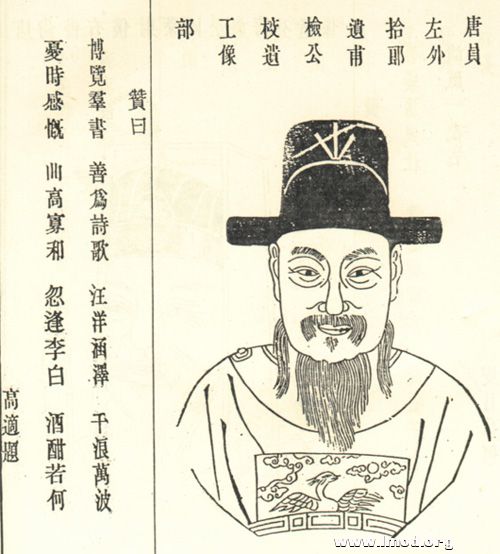 唐左拾遺檢校工部
員外郎甫公遺像
贊曰
博覽羣書 善爲詩歌 汪洋涵澤 千浪萬波
憂時感慨 曲高寡和 忽逢李白 酒酣若何
高適題
www.lmod.org